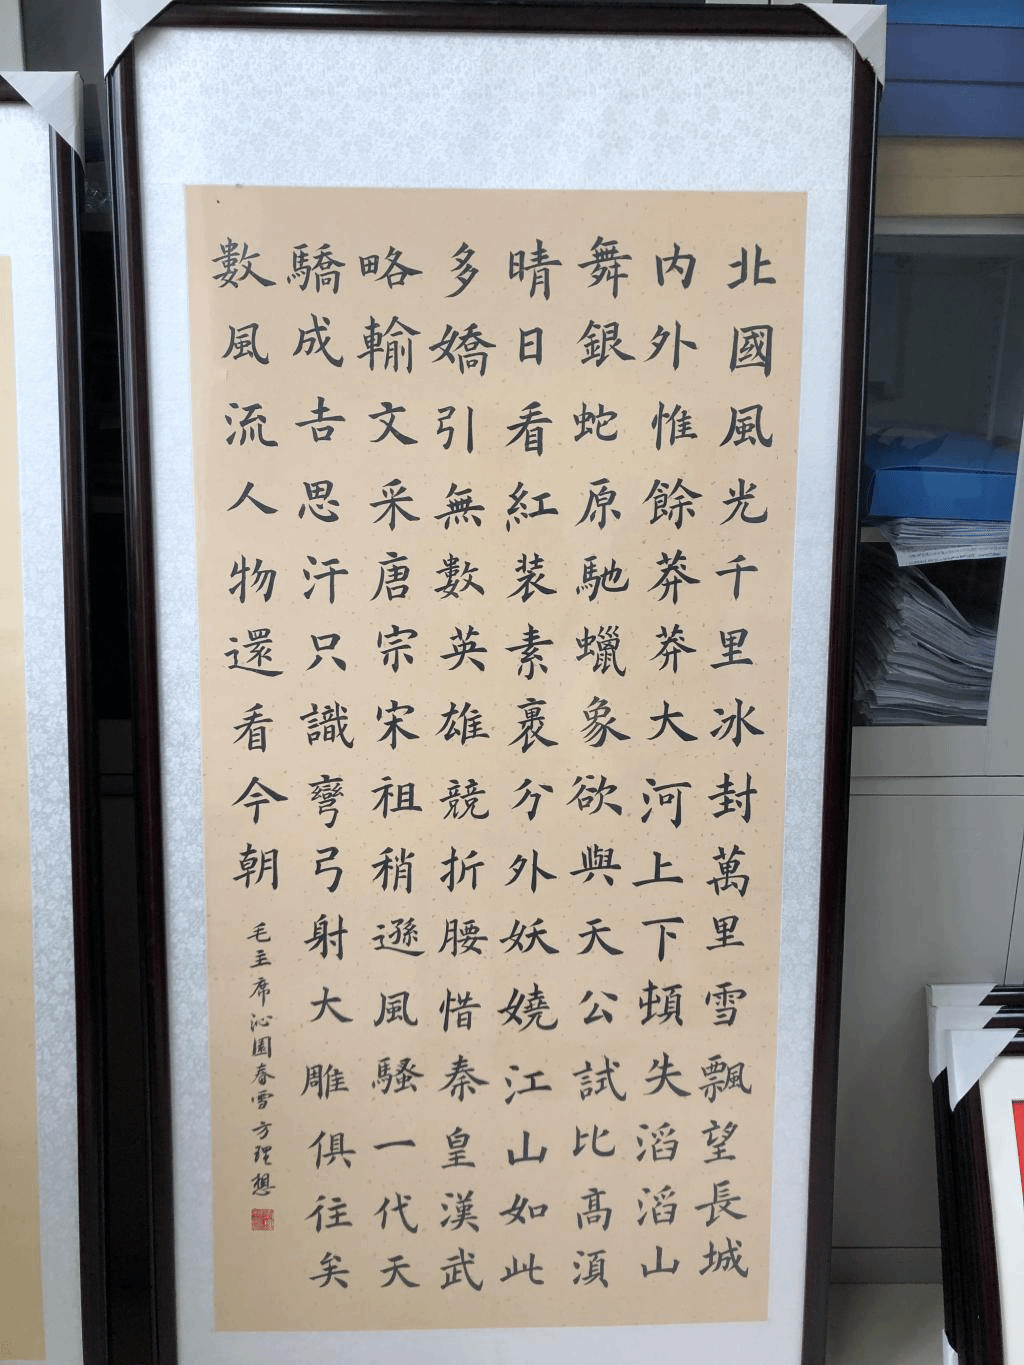 北國風光千里冰封萬里雪飄望長城
内外惟餘莽莽大河上下頓失滔滔山
舞銀蛇原馳蠟象欲與天公試比高湏
晴日看紅装素裹分外妖嬈江山如此
多嬌引無數英雄競折腰惜秦皇漢武
略輸文采唐宗宋祖稍遜風騷一代天
驕成吉思汗只識彎弓射大雕俱往矣
數風流人物還看今朝
毛主席沁園春雪方理想